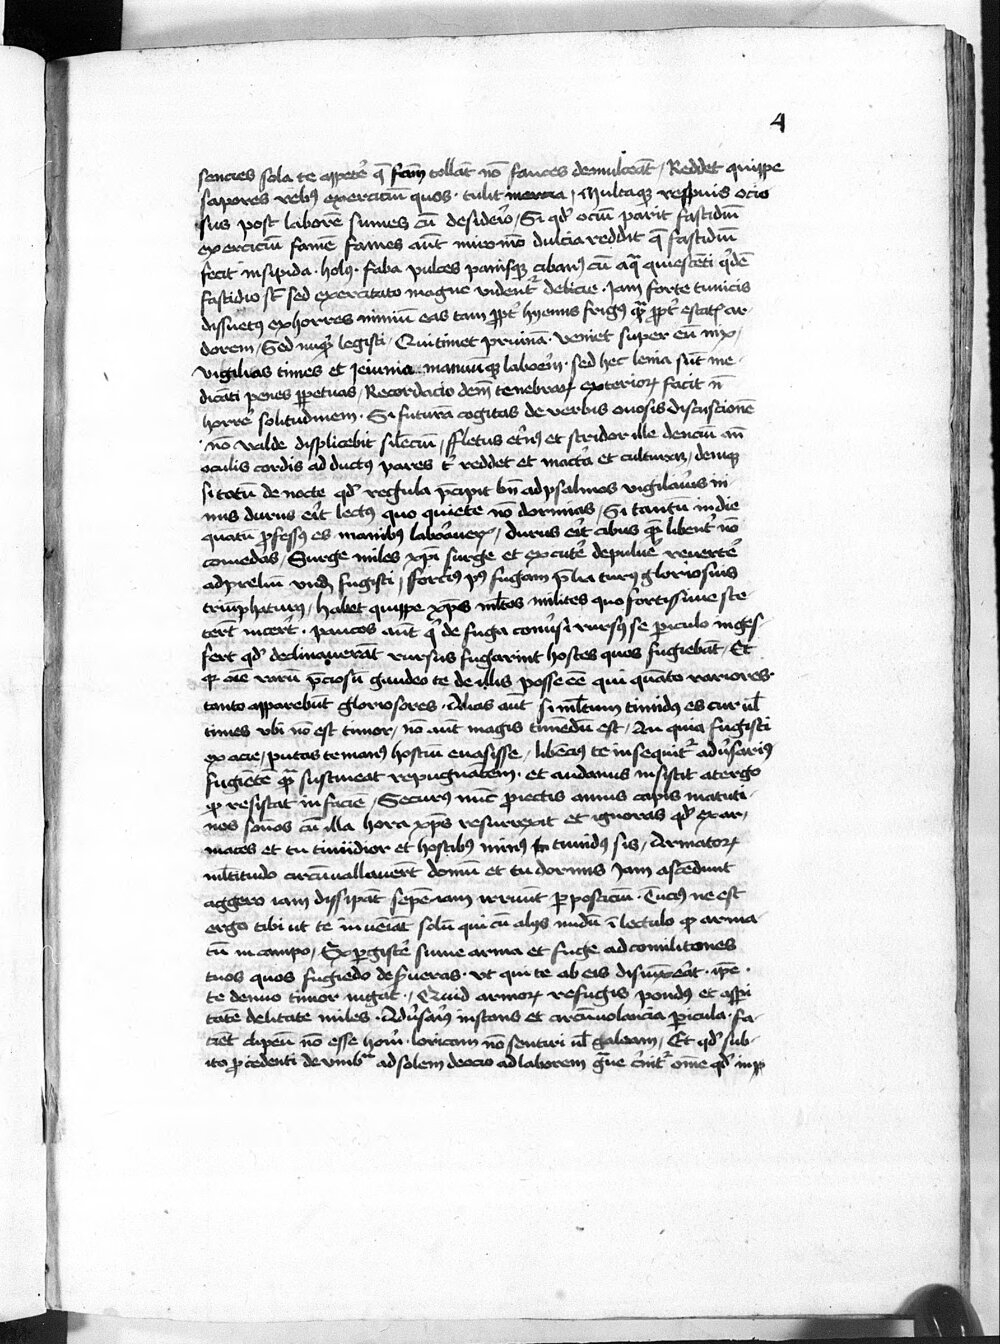 4
sencies sola te appetē q̄ famē tollāt nō fauces demulceāt / Reddet quippe
sapores rebꝰ exerciciū quos tulit inercia / Multaqꝫ respuis ocio
sus post laborē sumes cū desiderio / Si qd' ociū parit fastidiū
exerciciū famē fames aūt miro mō dulcia reddit q̄ fastidiū
fecit insipida · holꝰ · faba pulces panisqꝫ cibariꝰ cū aq̄ quiescēti q̄dē
fastidio st̄ sed exercitato magne vident̄ delicie · Jam forte tunicis
dissuetꝰ exhorres nimiū eas tam ꝓpt' hyemis frigꝰ q̄ ꝓpt' estatis ar-
dorem / Sed nūqd' legisti / Qui timet pruinā · veniet super eū nix /
vigilias times et Jeiunia manuūqꝫ laborem · sed hec leuia sūt me-
dicāti penes ꝑpetuas / Recordacio dem̄ tenebraꝝ exterioꝝ facit n̄
horrē solitudinem · Si futurā cogitas de verbis ociosis discussionē
nō valde displicebit silenciū / Fletus et̄nꝰ et stridor ille denciū an̄
oculis cordis adductꝰ pares t' reddet et mattā et culturam / deniqꝫ
si totū de nocte qd' regula p̄cipit bn̄ ad psalmos vigilaueris ni-
mis durus erit lectꝰ quo quiete nō dormias / Si tantū in die
quātū ꝓfessꝰ es manibꝰ laboraueris / durus erit cibus quē libent' nō
comedas / Surge miles xp̄i surge et excute depuluē reuertē
ad preliū vnde fugisti / forciꝰ pꝰ fugam p̄liaturꝰ gloriosius
triūphaturꝰ / habet quippe xp̄s ml̄tos milites quo fortissime ste
terūt vicerūt · paucos aūt q̄ de fuga conūsi rursꝰ se ꝑiculo inges-
serūt qd' declinauerāt rursus fugarint hostes quos fugiebāt / Et
qꝫ oīe rarū p̄ciosū gaudeo te de illis posse eē qui quāto rariores
tanto apparebūt gloriosores · Alias aūt si ml̄tum timidus es cur vl̄
times vbi nō est timor / nō aūt magis timēdū est / An quia fugisti
ex acie / putas te manꝰ hostiū euasisse / libēciꝰ te insequit̄ adūsariꝰ
fugientē q̄ sustineat repugnātem · et audaciuus insistit a tergo
qꝫ resistat in facie / Securꝰ nūc ꝓiectis armis capis matuti-
nos sōnos cū illa hora xp̄s resurrexit et ignoras qd' exar-
matꝰ et tu timidior et hostibꝰ minꝰ timidꝰ sis / Armatoꝝ
ml̄titudo circūuallauerūt domū et tu dormis Jam ascēdunt
aggerō iam dissipāt sepē iam irruūt ꝑ posticiū · Tuciꝰ ne est
ergo tibi ut te inueniāt solū qui cū alijs nudū ī lectulo qꝫ arma-
tū in campo / Exꝑgiscē sume arma et fuge ad comilitones
tuos quos fugiēdo deserueras · vt qui te ab eis disiunxerat · ipse ·
te denuo timor iūgat / Quid armoꝝ refugis pondꝰ et aspi
tatē delicate miles · Adūsariꝰ instans et circūuolancia ꝑicula · fa-
ciēt clipeū nō esse honī · loricam nō sentiri vl̄ galeam / Et qd' sub-
ito ꝓcedenti de vmbra ad solem deocio ad laborem ḡue c̄nit̄ om̄e qd' incip